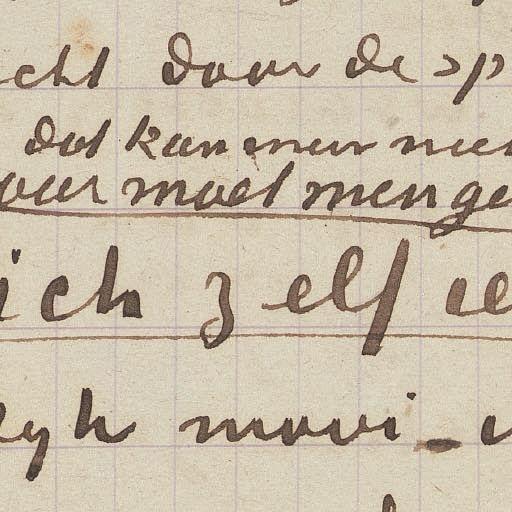 cht door de op
dat kan men niet
oar moet men ge
ich zelf
mooi -